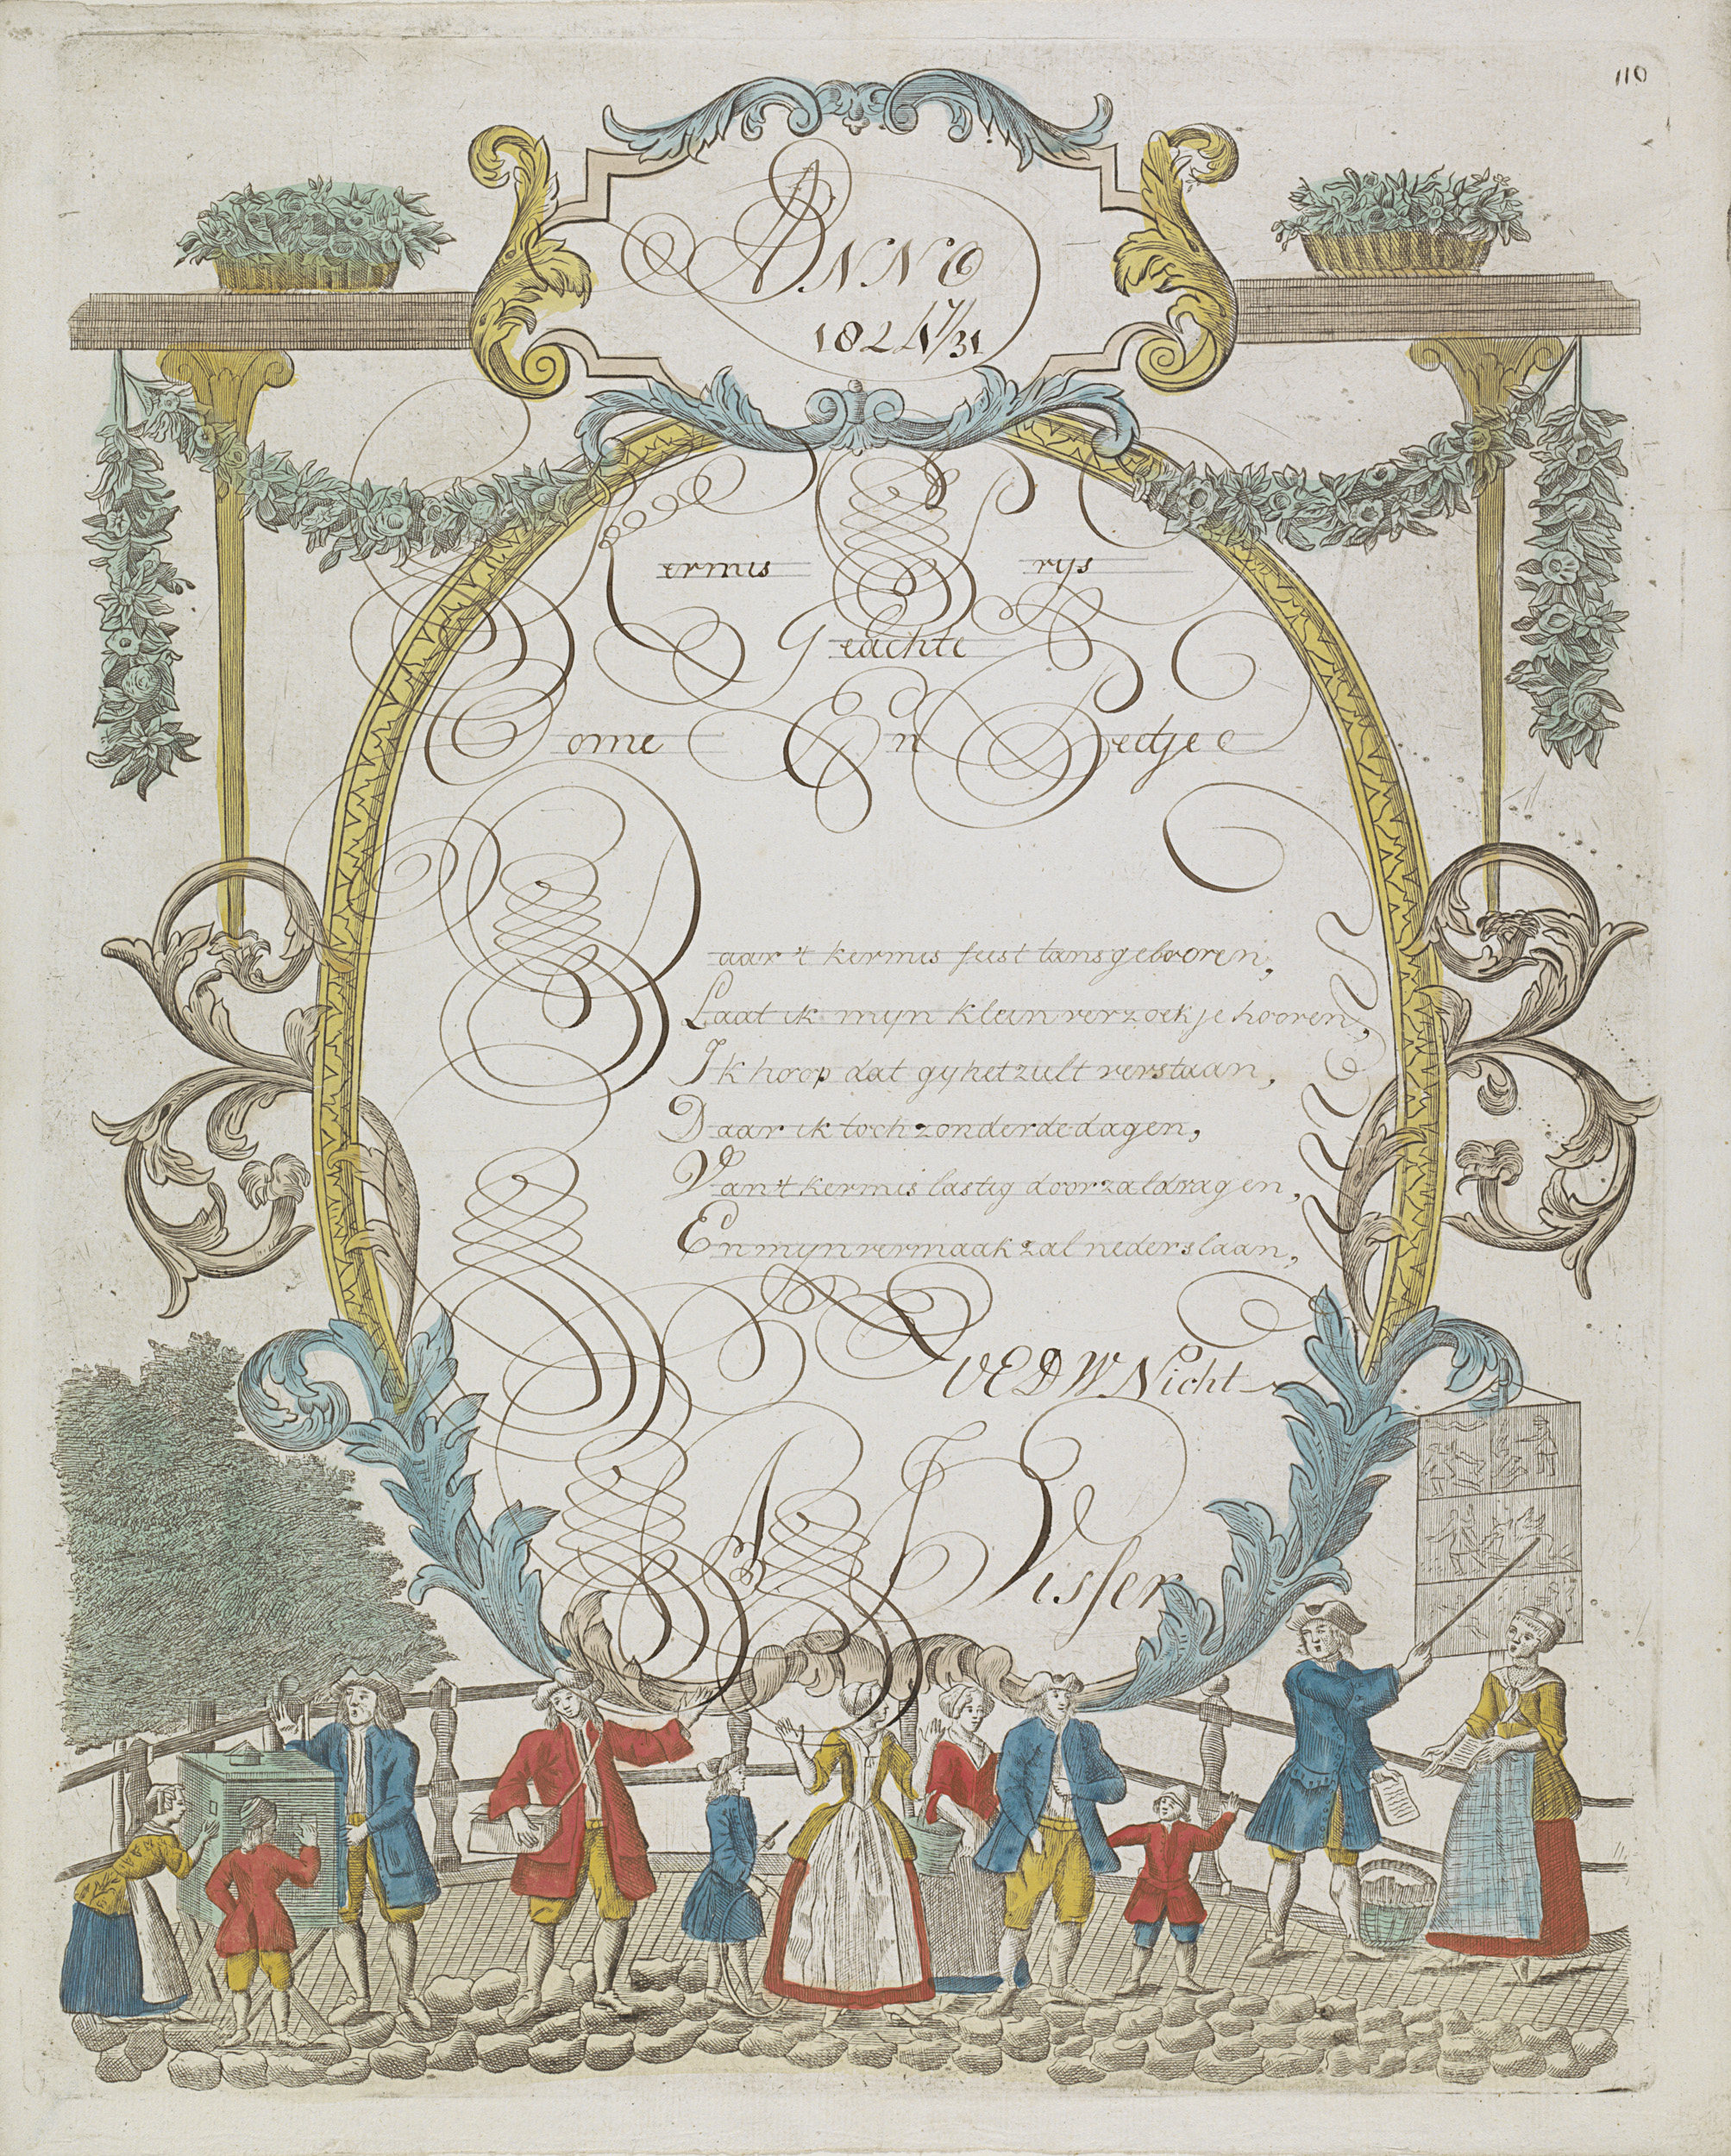 110
ANNO
1824 7/31
Kermis Prys
Geachte
Oome En Peetje
Daar 't kermis feest tans gebooren,
Laat ik myn klein verzoekje hooren,
Ik hoop dat gy het zult verstaan,
Daar ik toch zonder de dagen,
Van 't kermis lastig door zal dragen,
En myn vermaak zal neder slaan,
UED W Nicht
A J Visser